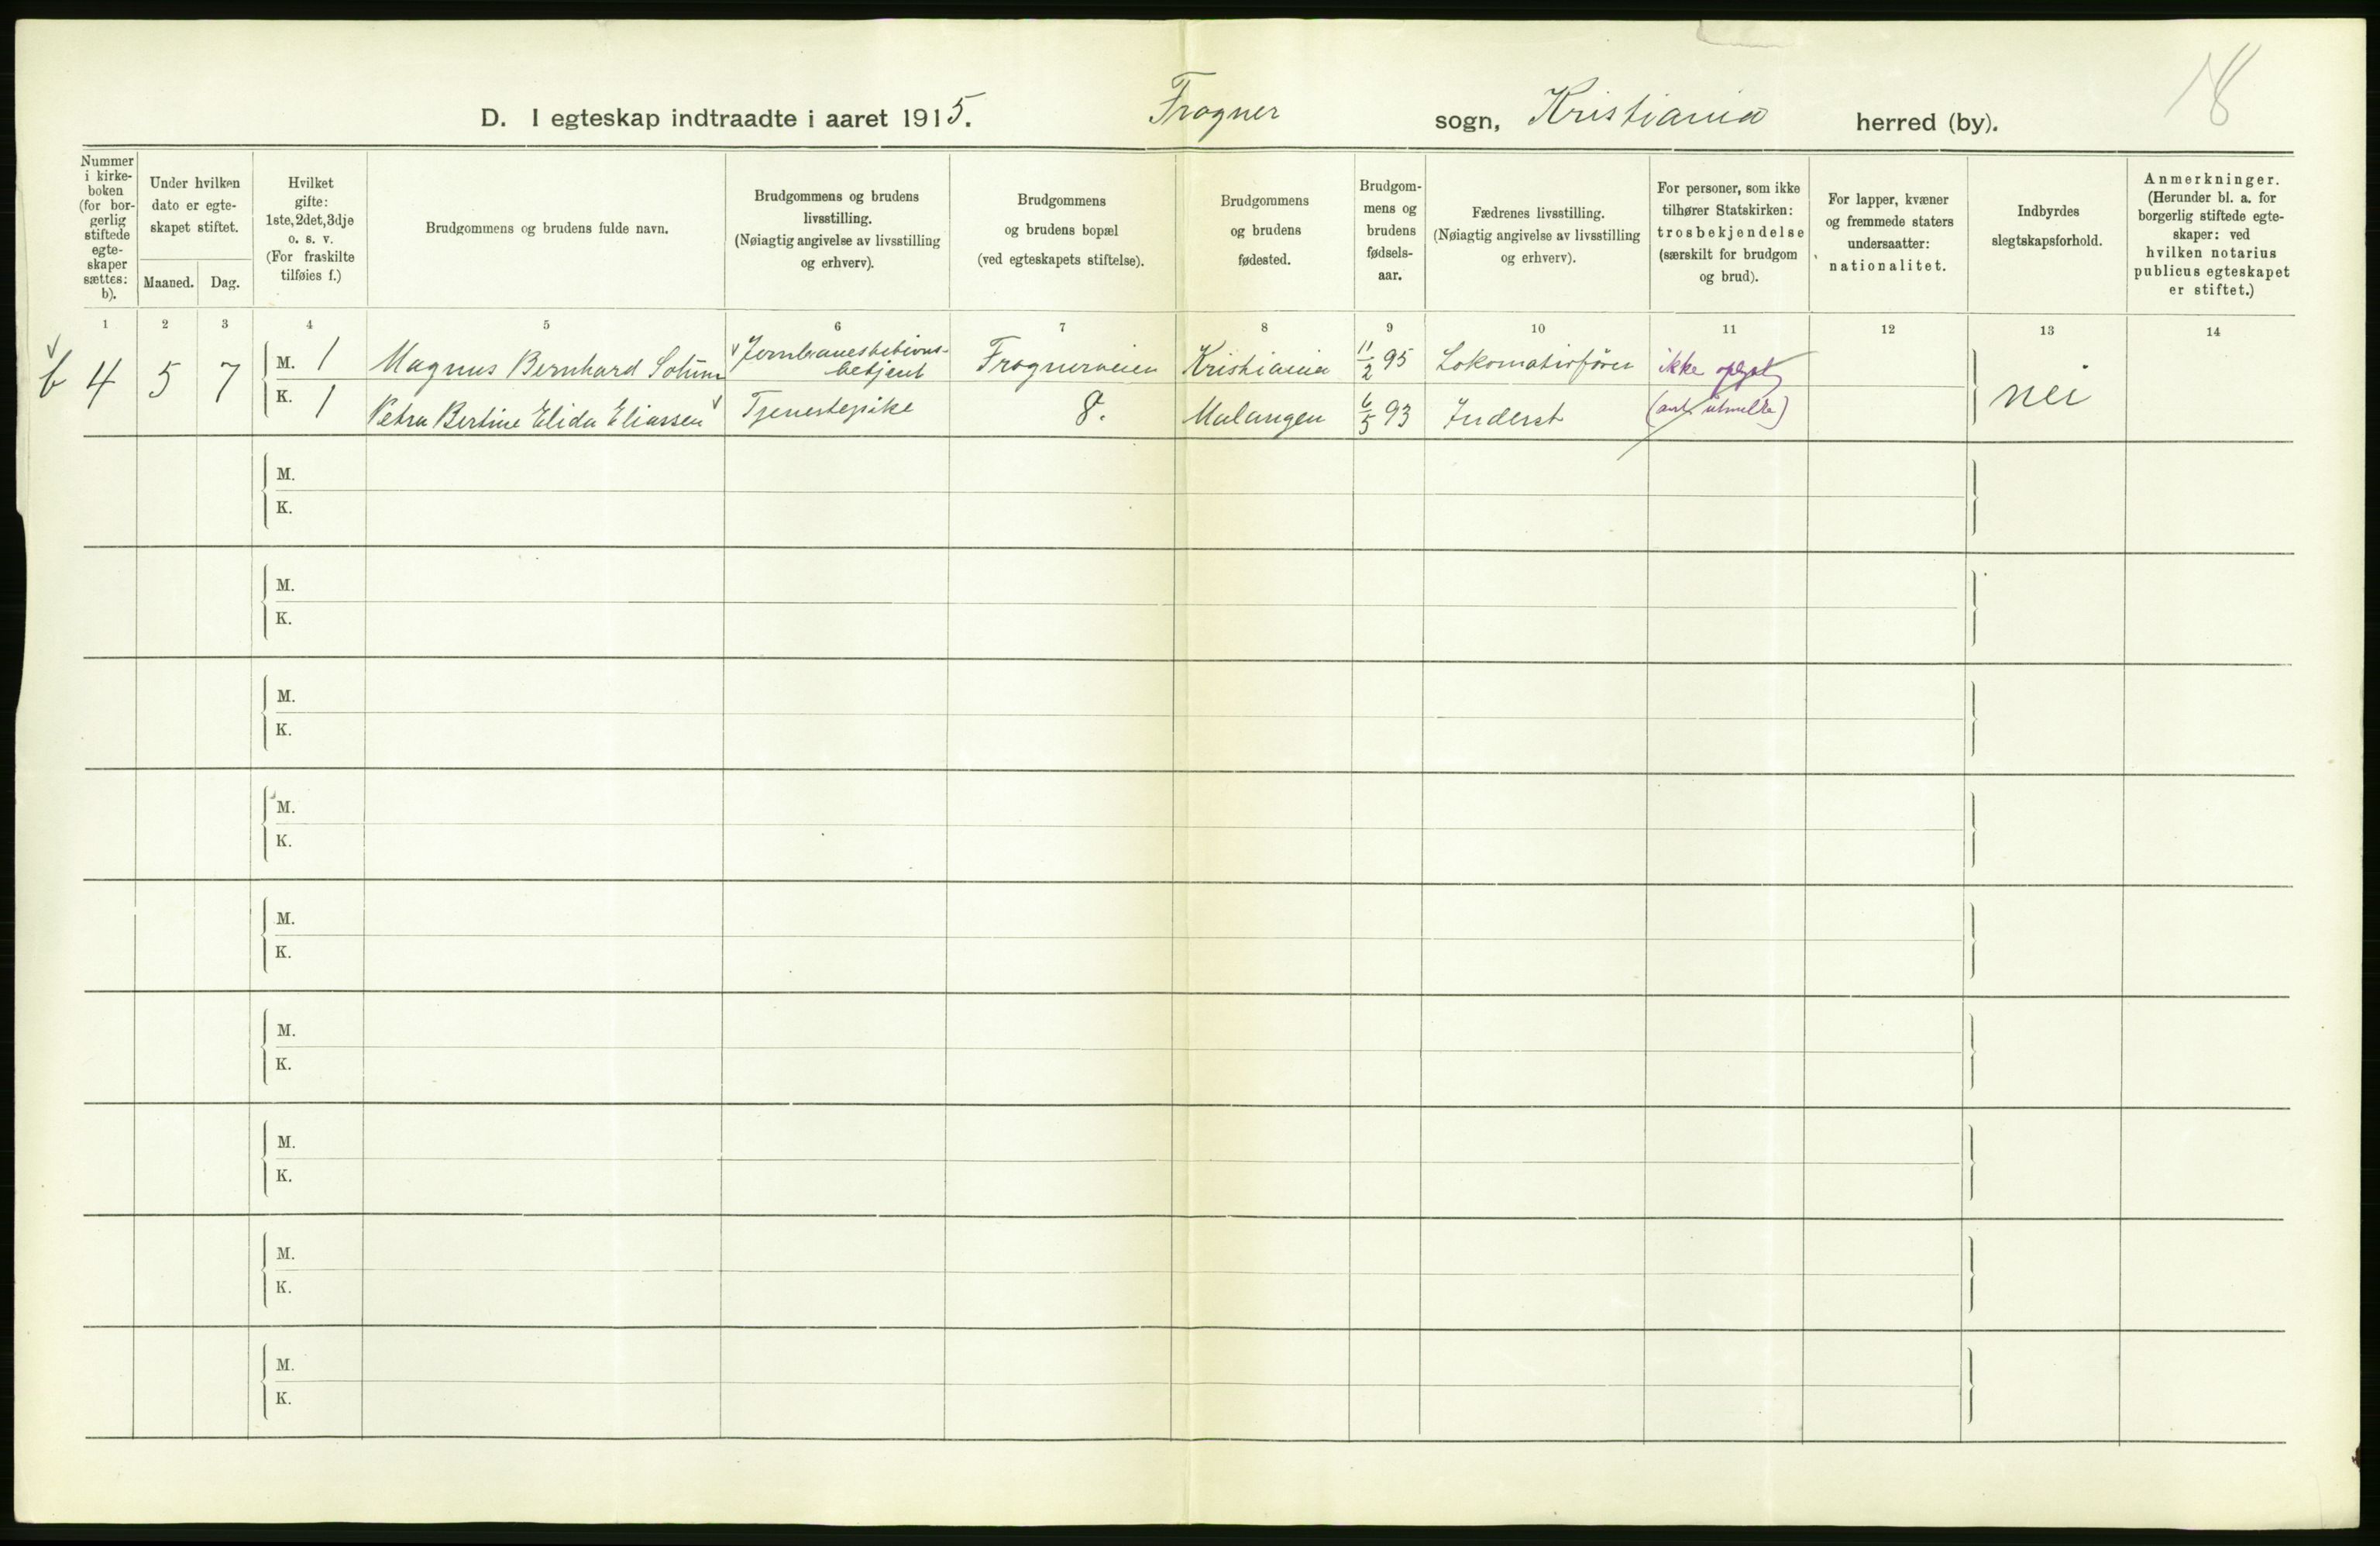 18
D. I egteskap indtraadte i aaret 1915. Frogner sogn, Kristiania herred (by).
Nummer
i kirke-
boken
(for bor-
gerlig
stiftede
egte-
skaper
sættes:
b).
Under hvilken
dato er egte-
skapet stiftet.
Maaned. Dag.
Hvilket
gifte:
1ste, 2det, 3dje
o. s. v.
(For fraskilte
tilføies f.)
Brudgommens og brudens fulde navn.
Brudgommens og brudens
livsstilling.
(Nøiagtig angivelse av livsstilling
og erhverv).
Brudgommens
og brudens bopæl
(ved egteskapets stiftelse).
Brudgommens
og brudens
fødested.
Brudgom-
mens og
brudens
fødsels-
aar.
Fædrenes livsstilling.
(Nøiagtig angivelse av livsstilling
og erhverv).
For personer, som ikke
tilhører Statskirken:
trosbekjendelse
(særskilt for brudgom
og brud).
For lapper, kvæner
og fremmede staters
undersaatter:
nationalitet.
Indbyrdes
slegtskapsforhold.
Anmerkninger.
(Herunder bl. a. for
borgerlig stiftede egte-
skaper: ved
hvilken notarius
publicus egteskapet
er stiftet.)
1 2 3 4 5 6 7 8 9 10 11 12 13 14
b 4 5 7 M. 1 Magnus Bernhard Jernbanestations-
betjent Frognerveien Kristiania 11/2 95 Lokomotivfører ikke oplyst
K. 1 Petra Bertine Elida Eliassen Tjenestepike 8. Malangen 6/5 93 Inderst nei
M.
K.
M.
K.
M.
K.
M.
K.
M.
K.
M.
K.
M.
K.
M.
K.
M.
K.